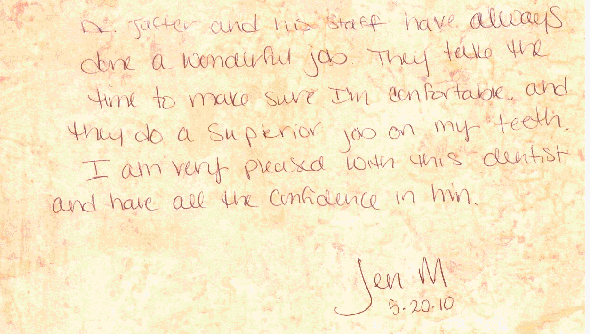 Dr. Jaffer and his staff have always
done a wonderful job. They take the
time to make sure I'm confortable, and
they do a Superior job on my teeth.
I am very pleased with this dentist
and have all the confidence in him.
Jen M
5-20-10